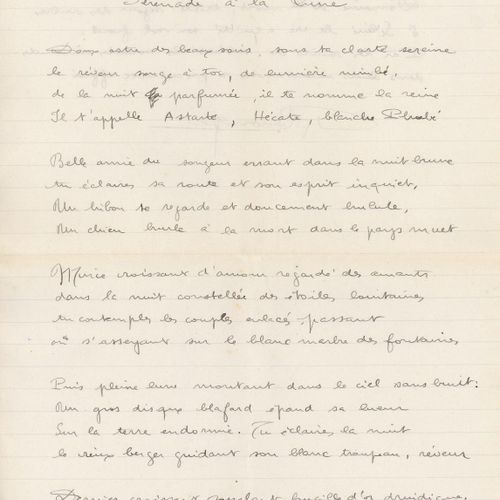 Sérénade à la Lune
Doux astre des beaux soirs, sous ta clarté sereine
le rêveur songe à toi, de lumière nimbé,
de la nuit parfumée, il te nomme la reine
Il t'appelle Astarté, Hécate, blanche Phœbé
Belle amie du songeur errant dans la nuit brune
tu éclaires sa route et son esprit inquiet,
Un hibou te regarde et doucement hulule,
Un chien hurle à la mort dans le pays muet
Mince croissant d'amour regardé des amants
dans la nuit constellée des étoiles lointaines
tu contemples les couples enlacés, passant
ou s'asseyant sur le blanc marbre des fontaines
Puis pleine lune montant dans le ciel sans bruit:
Un gros disque blafard épand sa lueur
Sur la terre endormie. Tu éclaires la nuit
le vieux berger guidant son blanc troupeau, rêveur
Dernier croissant semblant faucille d'or druidique,